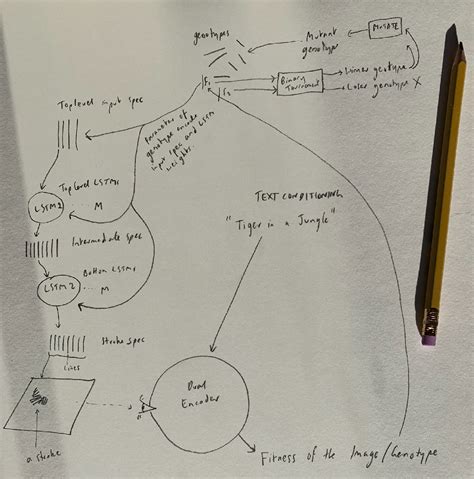 genotypes
Mutant
genotype
MUTATE
F1
F2
Binary
Tournament
Winner genotype
Loser genotype X
Top level input spec
Parameters of
genotype encode
input spec and LSTM
weights.
Top level LSTMs
LSTM 1 .... M
Intermediate spec
Bottom LSTMs
LSTM 2 ... M
TEXT CONDITIONING
"Tiger in a Jungle"
Stroke spec
Lines
Dual
Encoder
a stroke
Fitness of the Image/Genotype